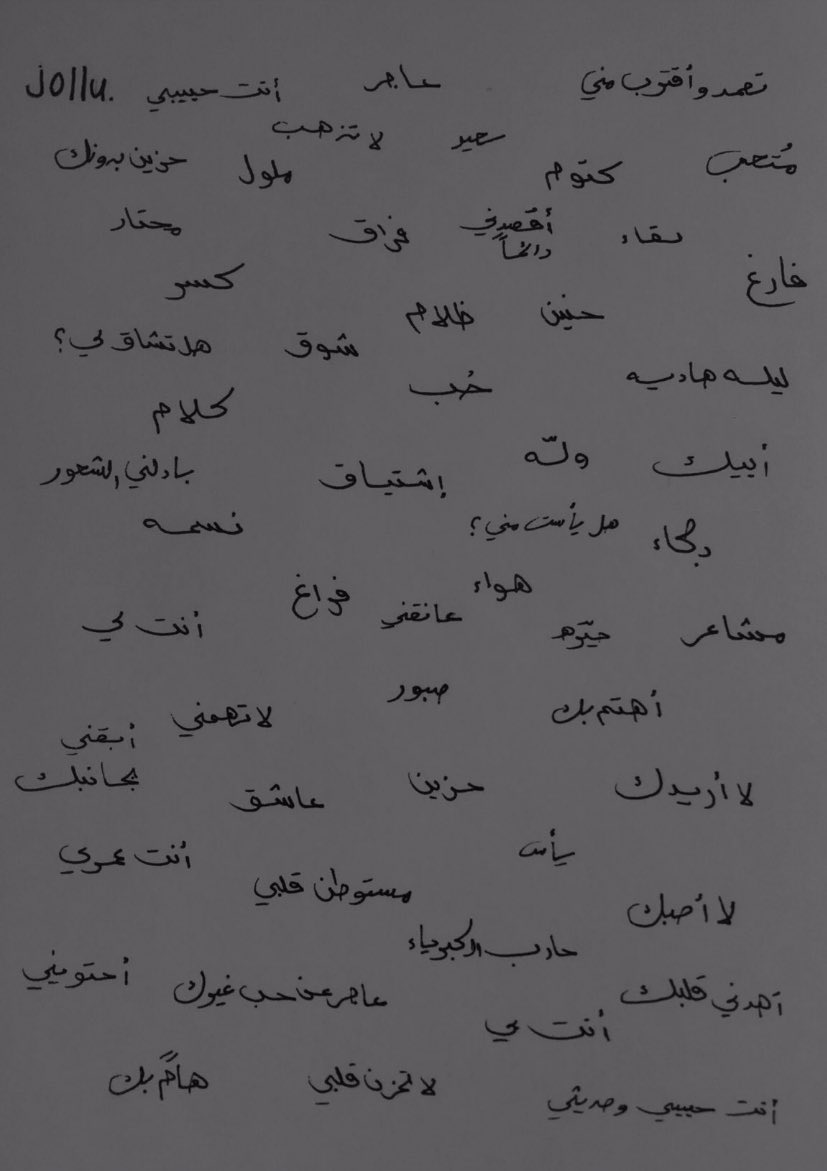 تعمد وأقترب مني
عاجر
أنت حبيبي
Jollu.
لا تذهب
سعيد
مُتعب
كتوم
ملول
حزين بدونك
لقاء
أقصدني دائماً
فراق
محتار
فارغ
حنين
ظلام
كسر
شوق
هل تشاق لي؟
ليله هاديه
حُب
كلام
أبيك
ولّه
إشتياق
بادلني الشعور
هل يأست مني؟
نسمه
هواء
فراغ
مشاعر
حيّره
عانقني
أنت لي
أهتم بك
صبور
لا تهمني
أبقني بجانبك
لا أريدك
حزين
عاشق
يأس
أنت عمري
لا أحبك
مستوطن قلبي
حارب الكبرياء
أهدني قلبك
عاجر عن حب غيرك
أحتويني
أنت لي
لا تحزن قلبي
هائم بك
أنت حبيبي وصديقي